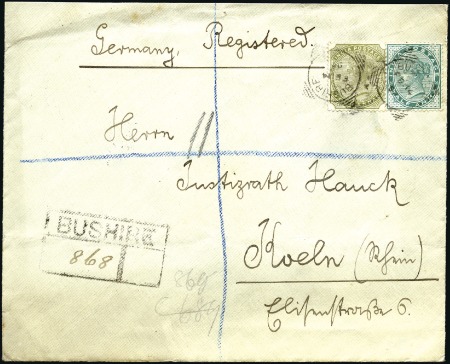 Germany, Registered.
Herrn
11
Justizrath Hauck
BUSHIRE
868
Koeln (Rhein)
Elisenstraße 6.